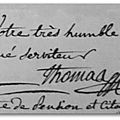 Votre très humble
né serviteur
Thomas
re de Penhon et Cito